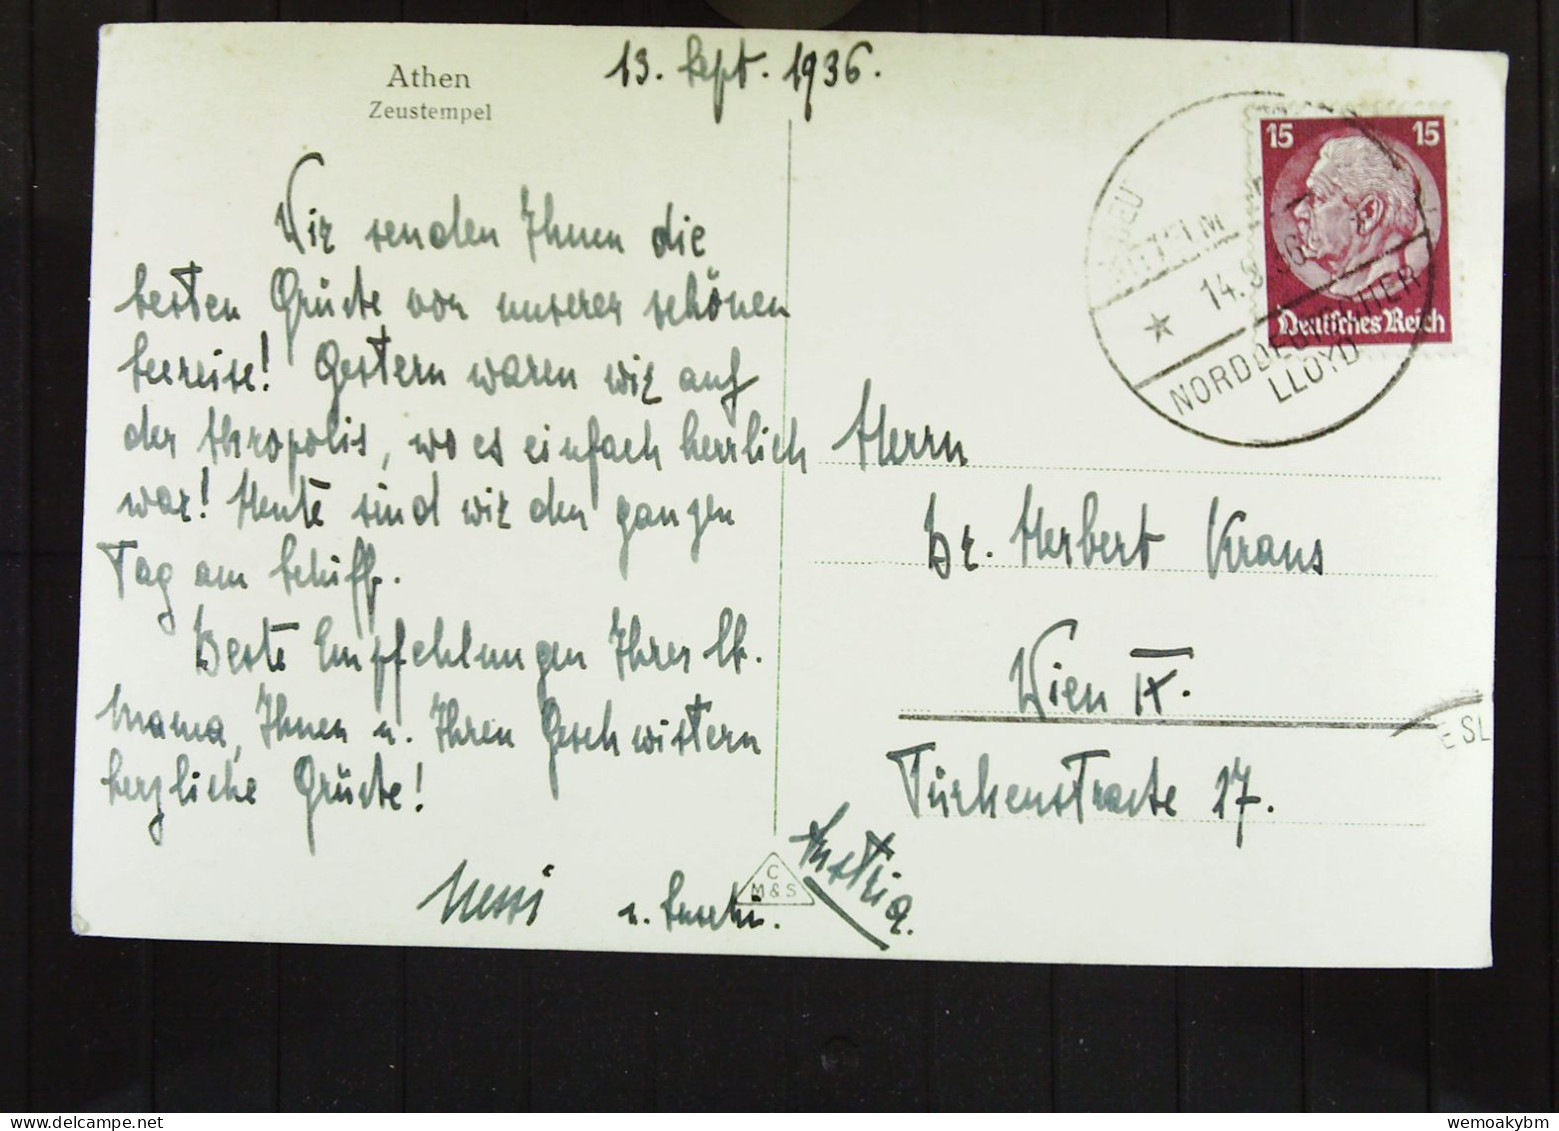 Athen
Zeustempel
13. Sept. 1936.
Wir senden Ihnen die
besten Grüsse von unserer schönen
Seereise! Gestern waren wir auf
der Akropolis, wo es einfach herrlich
war! Heute sind wir den ganzen
Tag am Schiff.
Beste Empfehlungen Ihrer lb.
Mama, Ihnen u. Ihren Geschwistern
herzliche Grüsse!
u.
C
M&S
15 15
Deutsches Reich
★ 14.9.
NORDDEUTSCHER
LLOYD
Herrn
Dr. Herbert Kraus
Wien IX.
Türkenstrasse 17.
Austria
E SL
wemoakybm